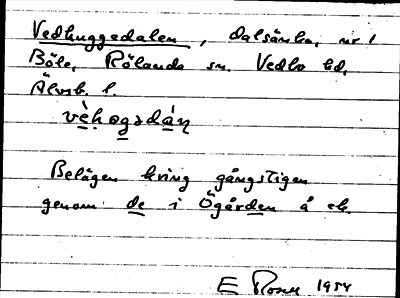 Vedhuggedalen, dalsänka, nr 1
Böle, Rölanda sn. Vedbo hd,
Älvsb. l.
vèhogsdán
Belägen kring gångstigen
genom de i Ögården å ek.
E 1954